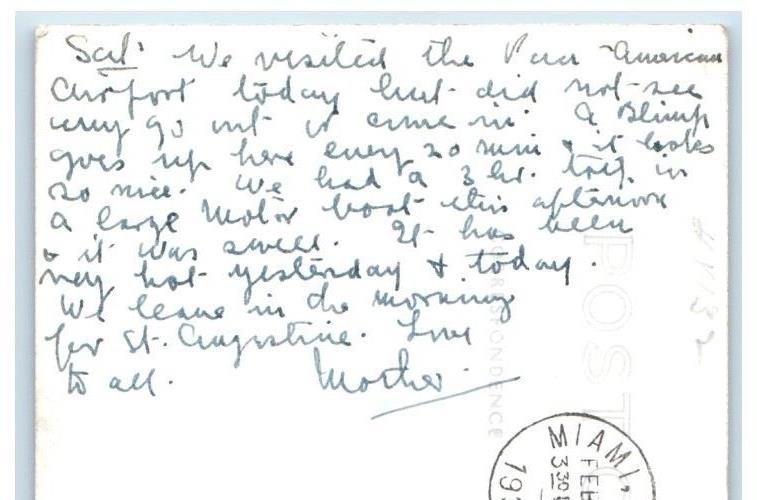 Sat. We visited the Pan-American
Airport today but did not see
any go out or come in. A Blimp
goes up here every 20 min & it looks
so nice. We had a 3 hr. trip in
a large Motor boat this afternoon
& it was swell. It has been
very hot yesterday & today.
We leave in the morning
for St. Augustine. Love
to all. Mother.
POST
CORRESPONDENCE
MIAMI,
FEB
3 30
193